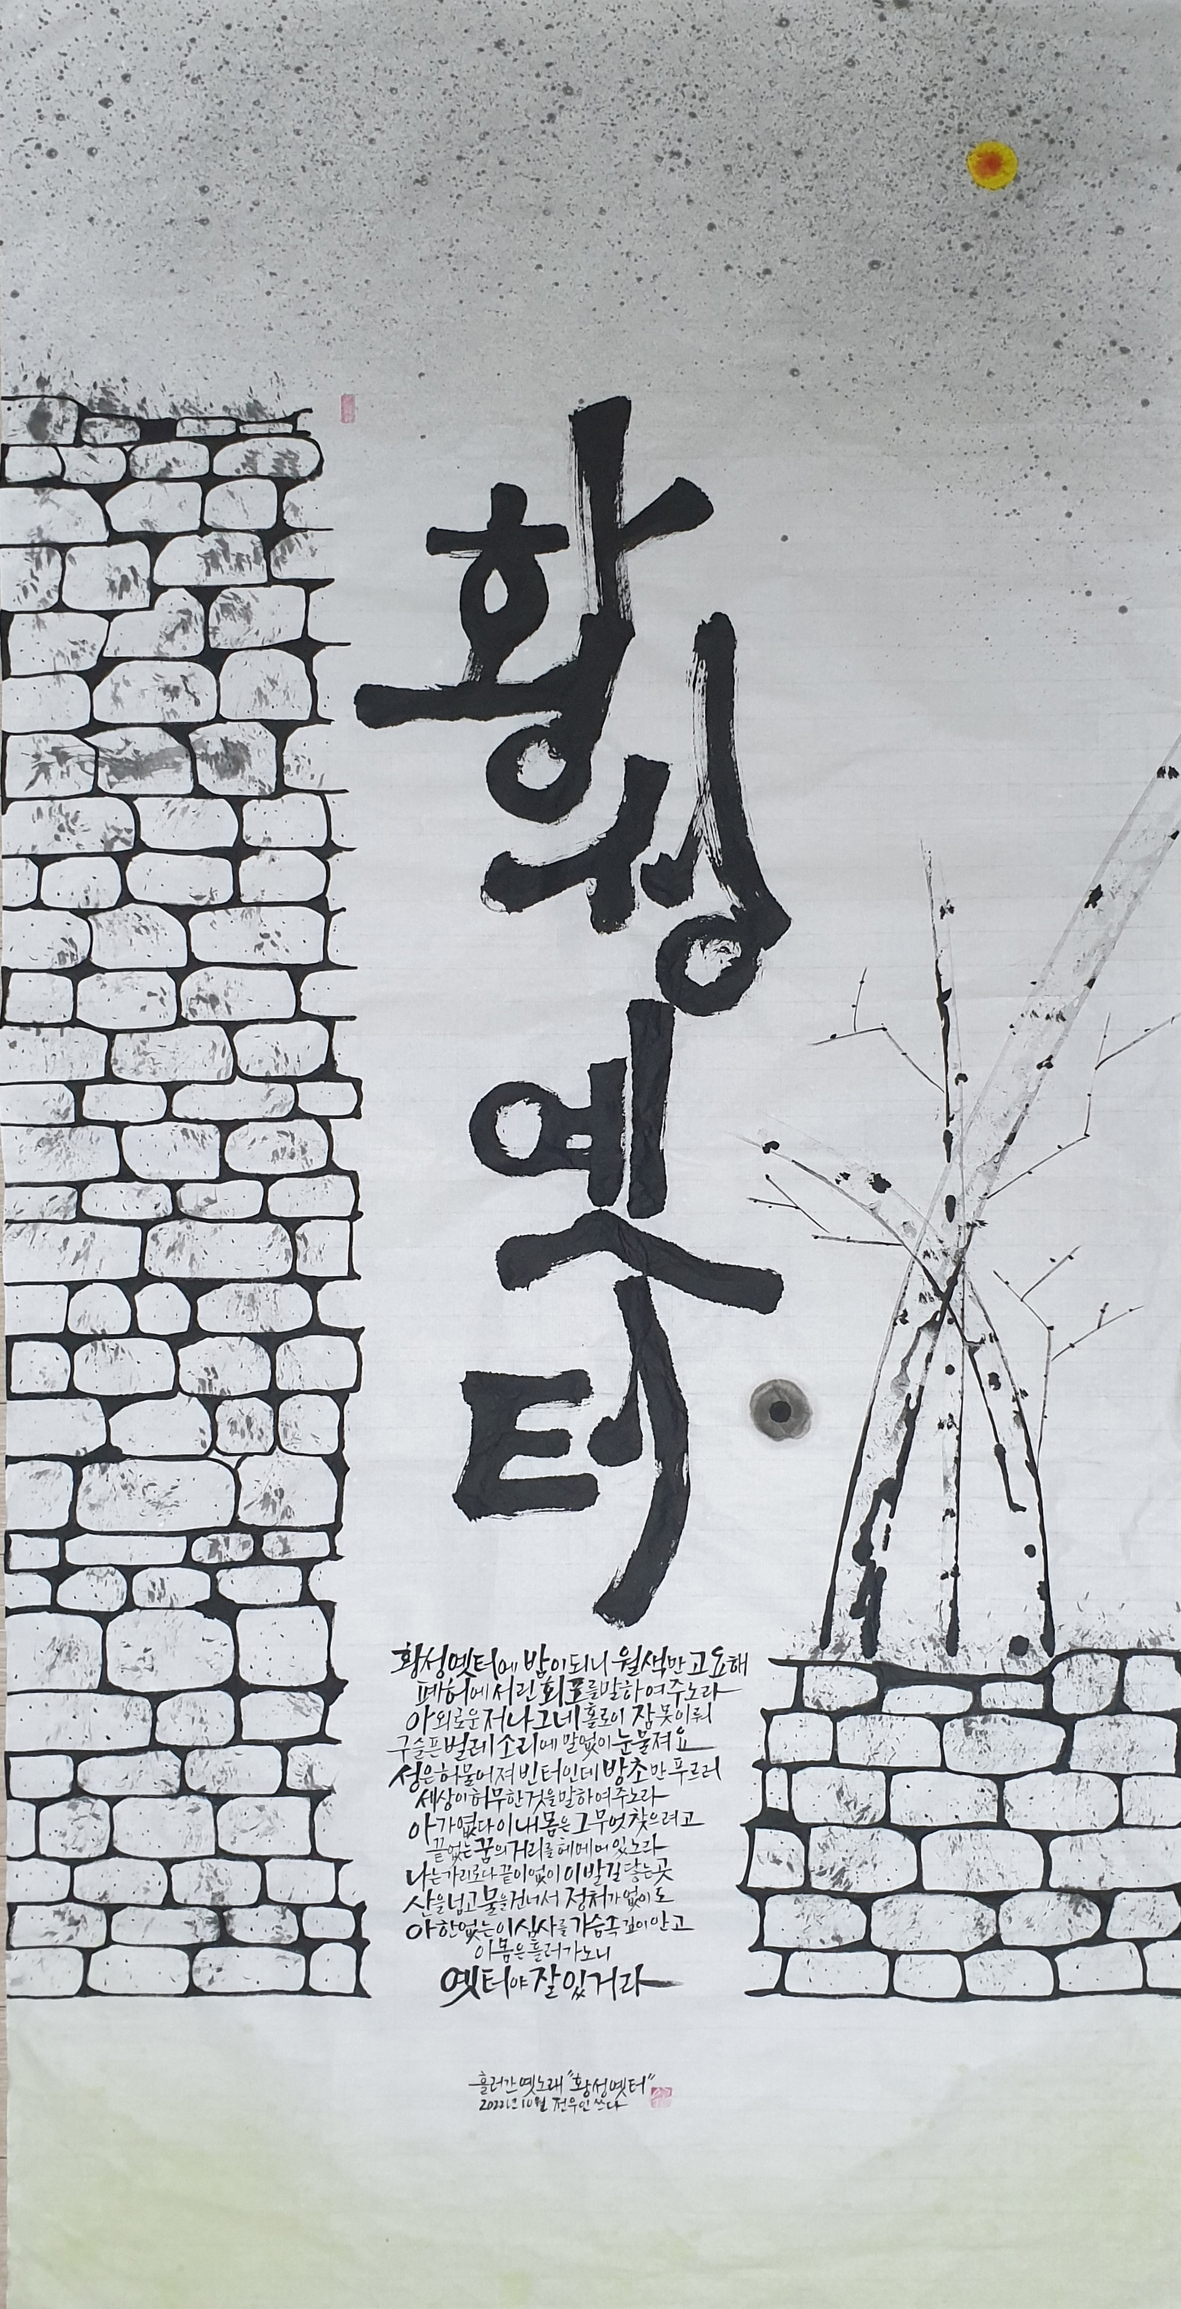 황성옛터
황성옛터에 밤이되니 월색만 고요해
폐허에 서린 회포를 말하여 주노라
아 외로운 저 나그네 홀로이 잠 못이뤄
구슬픈 벌레소리에 말없이 눈물져요
성은 허물어져 빈터인데 방초만 푸르러
세상이 허무한 것을 말하여 주노라
아 가엾다 이내몸은 그 무엇 찾으려고
끝없는 꿈의 거리를 헤메여 있노라
나는 가리로다 끝이 없이 이 발길 닿는 곳
산을 넘고 물을 건너서 정처가 없이도
아 한없는 이 심사를 가슴속 깊이 안고
이 몸은 흘러가노니
옛터야 잘 있거라
흘러간 옛노래 "황성옛터"
2022년 10월 전우인 쓰다